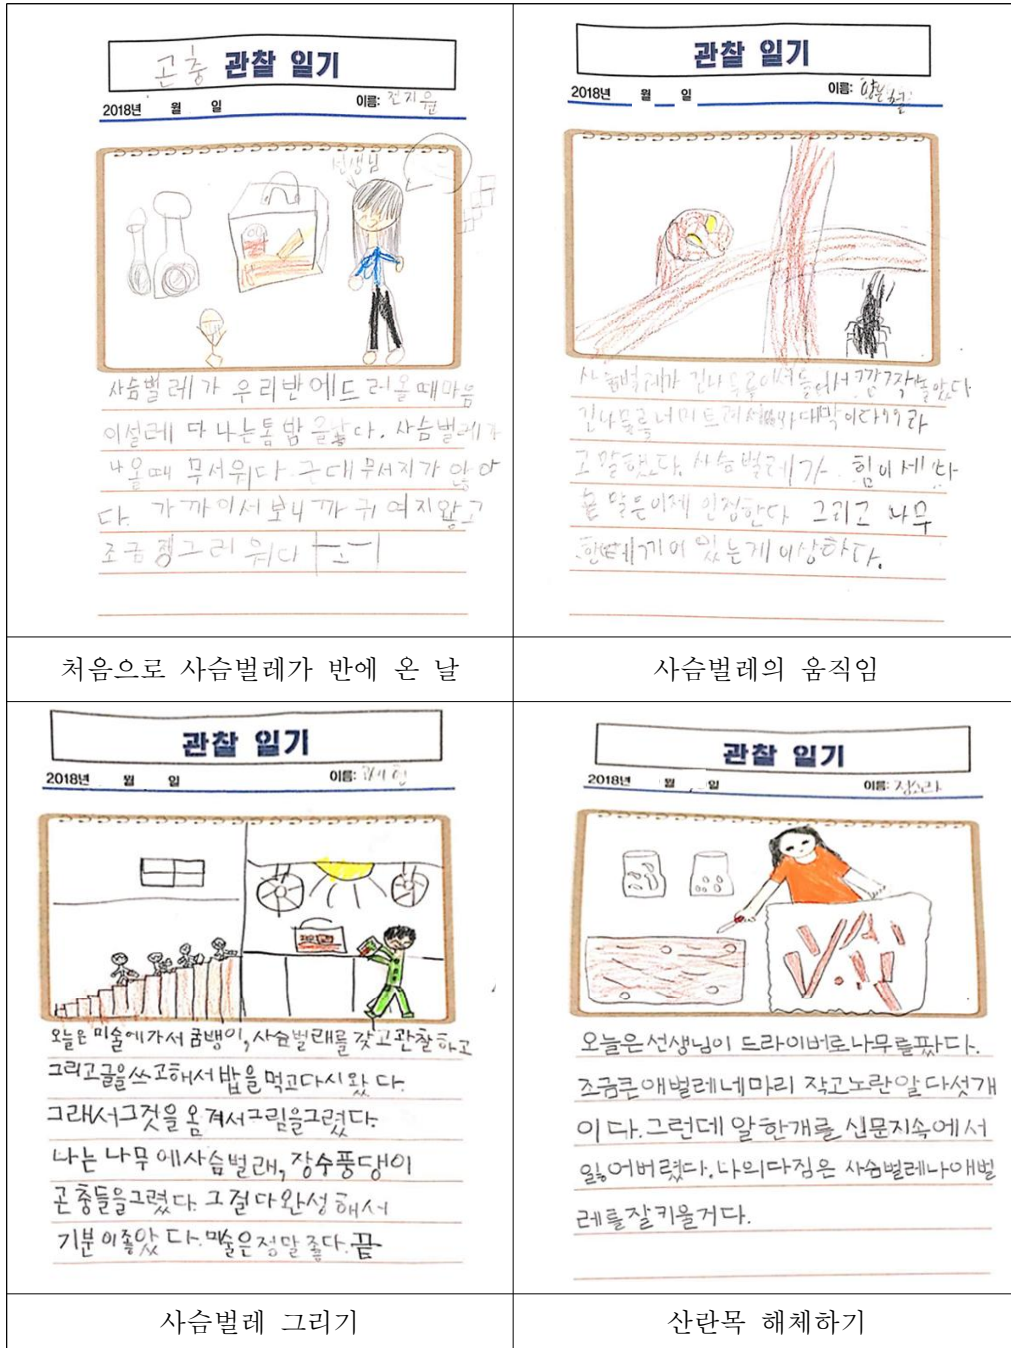 곤충 관찰 일기
2018년 월 일 이름: 전지원
선생님
사슴벌레가 우리반에드러올때마음
이설레 다 나는톱밥을낳다. 사슴벌레가
나올때 무서워다. 근대무서지가 않아
다. 가까이서보니까 귀여지않고
조금징그러워다 ㅜㅡㅜ
처음으로 사슴벌레가 반에 온 날
관찰 일기
2018년 월 일 이름:
사슴벌레가 긴나무를 깜짝놀았다
긴나무를너미트려서 와대박이다 라
고말했다. 사슴벌레가 힘이세다
는 말은이제 인정한다 그리고 나무
한테 끼어 있는게이상하다.
사슴벌레의 움직임
관찰 일기
2018년 월 일 이름:
오늘은 미술에가서 굼뱅이, 사슴벌래를 갖고관찰하고
그리고글을쓰고해서밥을먹고다시왔다.
그래서그것을옴겨서그림을그렸다.
나는 나무에사슴벌래, 장수풍댕이
곤충들을그렸다. 그걸다완성해서
기분이좋았다. 미술은정말좋다. 끝
사슴벌레 그리기
관찰 일기
2018년 월 일 이름: 정소라
오늘은선생님이 드라이버로나무를팠다.
조금큰애벌레네마리 작고노란알다섯개
이다. 그런데 알한개를 신문지속에서
잃어버렸다. 나의다짐은 사슴벌레나애벌
레를잘키울거다.
산란목 해체하기